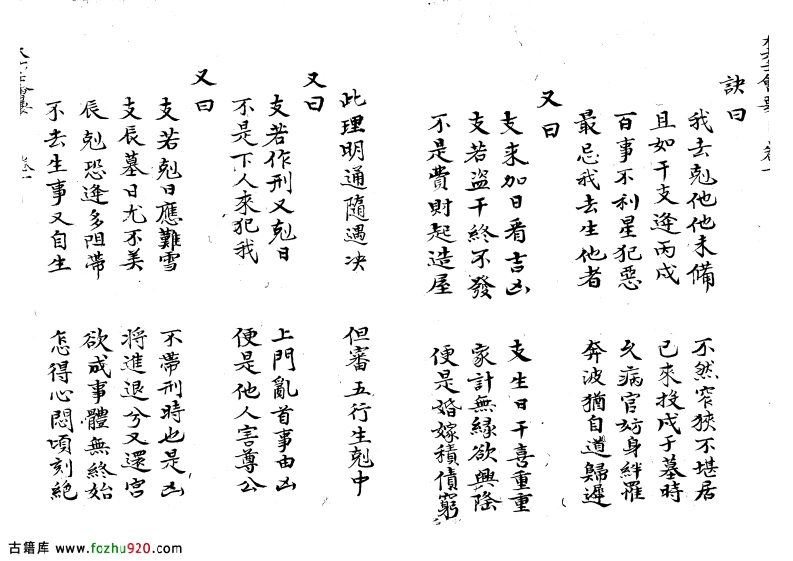 訣曰
我去剋他他未備 不然窄狹不堪居
且如干支逢丙戌 已來投戌于墓時
百事不利星犯惡 久病官妨身絆羅
最忌我去生他者 奔波猶自道歸遲
又曰
支来加日看吉凶 支生日干喜重重
支若盜干終不發 家計無緣欲興隆
不是費財起造屋 便是婚嫁積債窮
此理明通隨遇决 但審五行生剋中
又曰
支若作刑又剋日 上門亂首事由凶
不是下人來犯我 便是他人害尊公
又曰
支若剋日應難雪 不帶刑時也是凶
支辰墓日尤不美 将進退兮又還宮
辰剋恐逢多阻滯 欲成事體無終始
不去生事又自生 怎得心悶頃刻絶
古籍库 www.fozhu920.com